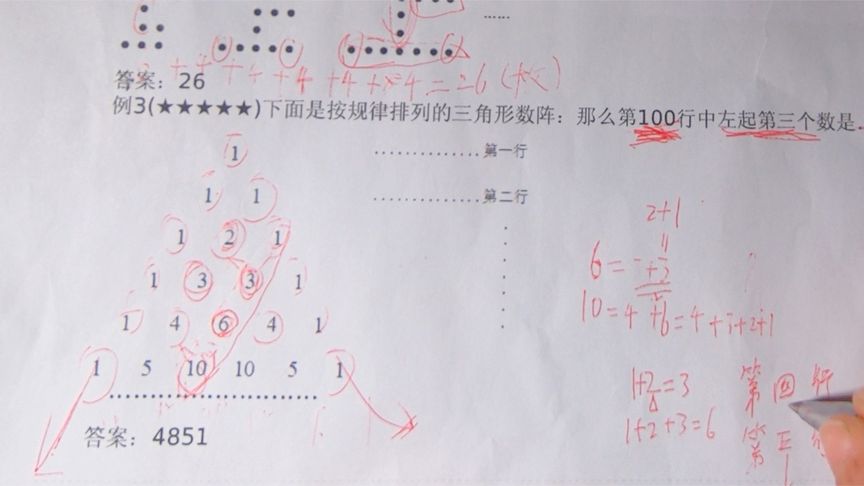 ......
答案：26
+4+4+4=26(枚)
例3(★★★★★)下面是按规律排列的三角形数阵：那么第100行中左起第三个数是
1 ..............第一行
1 1 ..............第二行
1 2 1
1 3 3 1
1 4 6 4 1
1 5 10 10 5 1
答案：4851
2+1
6=
10=4+6=4+3+2+1
1+2=3 第四行
1+2+3=6 第五